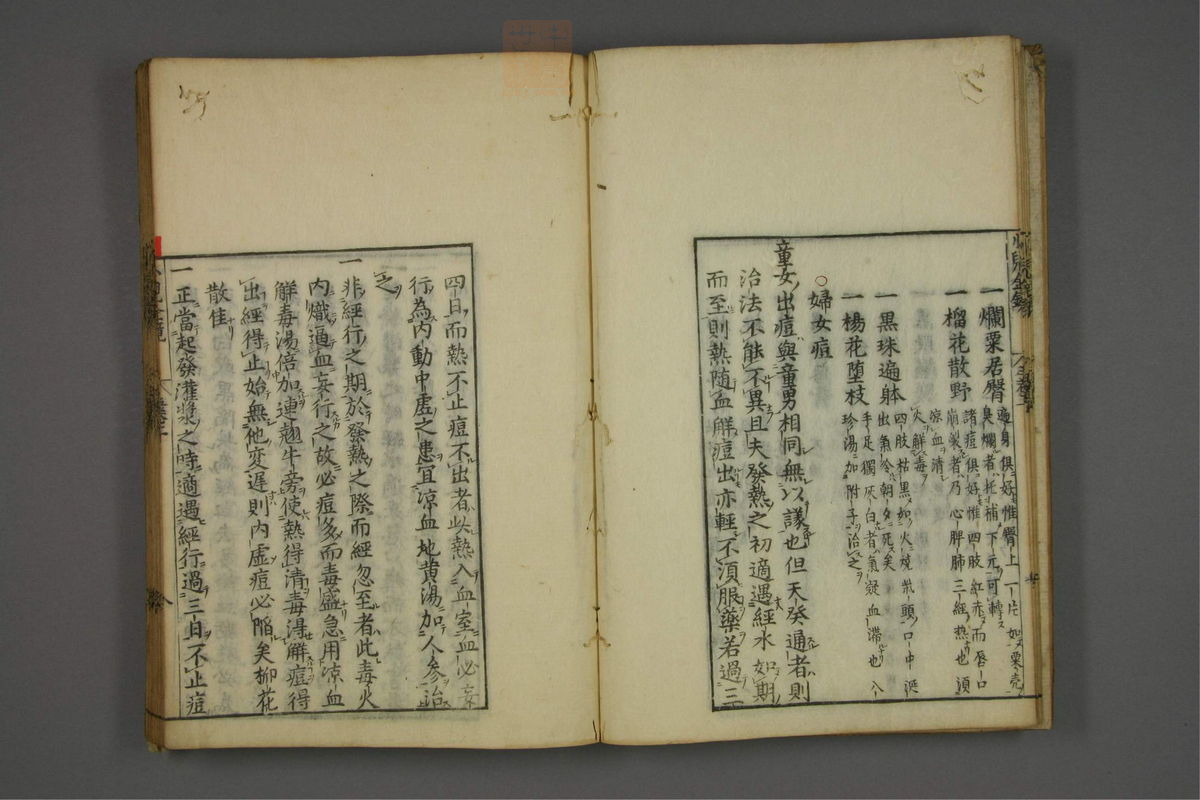 一爛粟居臀 遍身俱好惟臀上一片如粟壳
臭爛者托補下元可轉
一榴花散野 諸痘俱好惟四肢紅赤而唇口
崩裂者乃心脾肺三經熱也須
凉血清
火解毒
一黒珠遍躰 四肢枯黒如火燒柴頭口中涎
出氣冷朝夕死矣
一楊花堕枝 手足獨灰白者氣凝血滞也入
珍湯加附子治之
○婦女痘
童女出痘與童男相同無以議也但天癸通者則
治法不能不異且夫發熱之初適遇經水如期
而至則熱随血解痘出亦輕不湏服藥若過三
四日而熱不止痘不出者此熱入血室血必妄
行為内動中虚之患宜凉血地黄湯加人参治
之
一非經行之期於發熱之際而經忽至者此毒火
内熾逼血妄行之故必痘多而毒盛急用凉血
解毒湯倍加連翹牛旁使熱得清毒得解痘得
出經得止始無他変遅則内虚痘必陥矣柳花
散佳
一正當起發灌漿之時適遇經行過三日不止痘